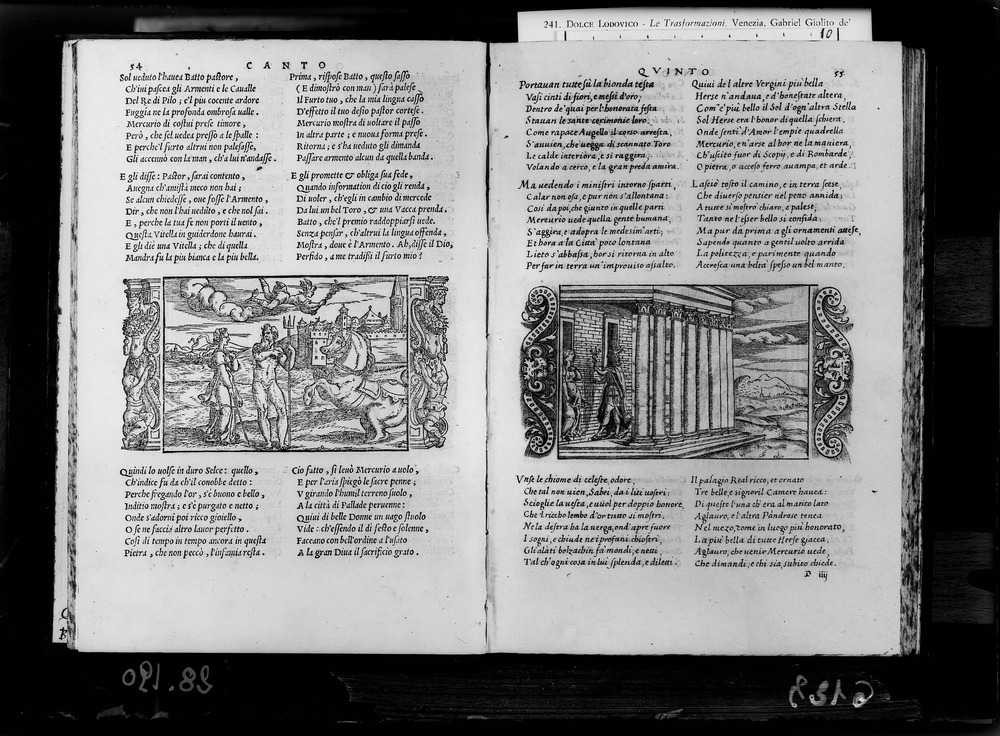 241. DOLCE LODOVICO - Le Trasformazioni. Venezia, Gabriel Giolito de'
10
54 CANTO
Sol ueduto l'hauea Batto pastore,
Ch'iui pascea gli Armenti e le Caualle
Del Re di Pilo; e'l piu cocente ardore
Fuggia ne la profonda ombrosa ualle.
Mercurio di costui prese timore,
Però, che sel uedea presso a le spalle:
E perche'l furto altrui non palesasse,
Gli accennò con la man, ch'a lui n'andasse.
E gli disse: Pastor, sarai contento,
Auegna ch'amistà meco non hai;
Se alcun chiedesse, oue fosse l'Armento,
Dir, che non l'hai uedüto, e che nol sai.
E, perche la tua fe non porti il uento,
Questa Vitella in guiderdone haurai.
E gli diè una Vitella; che di quella
Mandra fu la piu bianca e la piu bella.
Prima, rispose Batto, questo sasso
(E dimostrò con man) farà palese
Il furto tuo, che la mia lingua casso
D'effetto il tuo desio pastor cortese.
Mercurio mostra di uoltare il passo
In altra parte; e nuoua forma prese.
Ritorna; e s'ha ueduto gli dimanda
Passare armento alcun da quella banda.
E gli promette & obliga sua fede,
Quando information di ciò gli renda,
Di uoler, ch'egli in cambio di mercede
Da lui un bel Toro, & una Vacca prenda.
Batto, che'l premio raddoppiarsi uede.
Senza pensar, ch'altrui la lingua offenda,
Mostra, doue è l'Armento. Ah, disse il Dio,
Perfido, a me tradisci il furto mio?
Quindi lo uolse in duro Selce: quello,
Ch'indice fu da ch'il conobbe detto:
Perche fregando l'or, s'è buono e bello,
Inditio mostra; e s'è purgato e netto;
Onde s'adorni poi ricco gioiello,
O se ne faccia altro lauor perfetto.
Così di tempo in tempo ancora in questa
Pietra, che non peccò, l'infamia resta.
Ciò fatto, si leuò Mercurio a uolo,
E per l'aria spiegò le sacre penne;
V girando l'humil terreno suolo,
A la città di Pallade peruenne:
Quiui di belle Donne un uago stuolo
Vide: ch'essendo il dì festo e solenne,
Faceano con bell'ordine a l'usato
A la gran Diua il sacrificio grato.
QVINTO 55
Portauan tutte sù la bionda testa
Vasi cinti di fiori, e mesti d'oro;
Dentro de' quai per l'honorata festa
Stauan le sante cerimonie loro.
Come rapace Augello il corso arresta,
S'auuien, che uegga di scannato Toro
Le calde interiora, e si raggira,
Volando a cerco, e la gran preda amira.
Ma uedendo i ministri intorno sparti,
Calar non osa, e pur non s'allontana:
Così da poi, che giunto in quelle parti
Mercurio uede quella gente humana,
S'aggira, e adopra le medesim'arti;
Et hora a la Città poco lontana
Lieto s'abbassa, hor si ritorna in alto
Per far in terra un'improuiso assalto.
Quiui de l'altre Vergini più bella
Herse n'andaua, e d'honestate altera,
Com'è più bello il Sol d'ogn'altra Stella
Sol Herse era l'honor di quella schiera.
Onde sentì d'Amor l'empie quadrella
Mercurio, e n'arse al hor ne la maniera,
Ch'uscito fuor di Scopij, e di Bombarde
O pietra, o acceso ferro auampa, et arde.
Lasciò tosto il camino, e in terra scese,
Che diuerso pensier nel petto annida;
A tutte si mostrò chiaro, e palese,
Tanto ne l'esser bello si confida.
Ma pur da prima a gli ornamenti attese,
Sapendo quanto a gentil uolto arrida
La politezza, e parimente quando
Accresca una beltà spesso un bel manto.
Unse le chiome di celeste odore,
Che tal non uien, Sabei, da i liti uostri;
Scioglie la uesta, e uuol per doppio honore,
Che'l ricco lembo d'or tutto si mostri,
Ne la destra ha la uerga, ond'apre fuore
I sogni, e chiude ne i profani chiostri,
Gli alati bolzachin fa mondi, e netti,
Tal ch'ogni cosa in lui splenda, e diletti.
Il palagio Real ricco, et ornato
Tre belle, e signoril Camere hauea:
Di queste l'una ch'era al manco lato
Aglauro, e l'altra Pandrose tenea
Nel mezo, come in luogo più honorato,
La più bella di tutte Herse giacea.
Aglauro, che uenir Mercurio uede,
Che dimandi, e chi sia, subito chiede.
D iiij
28.190
G 133